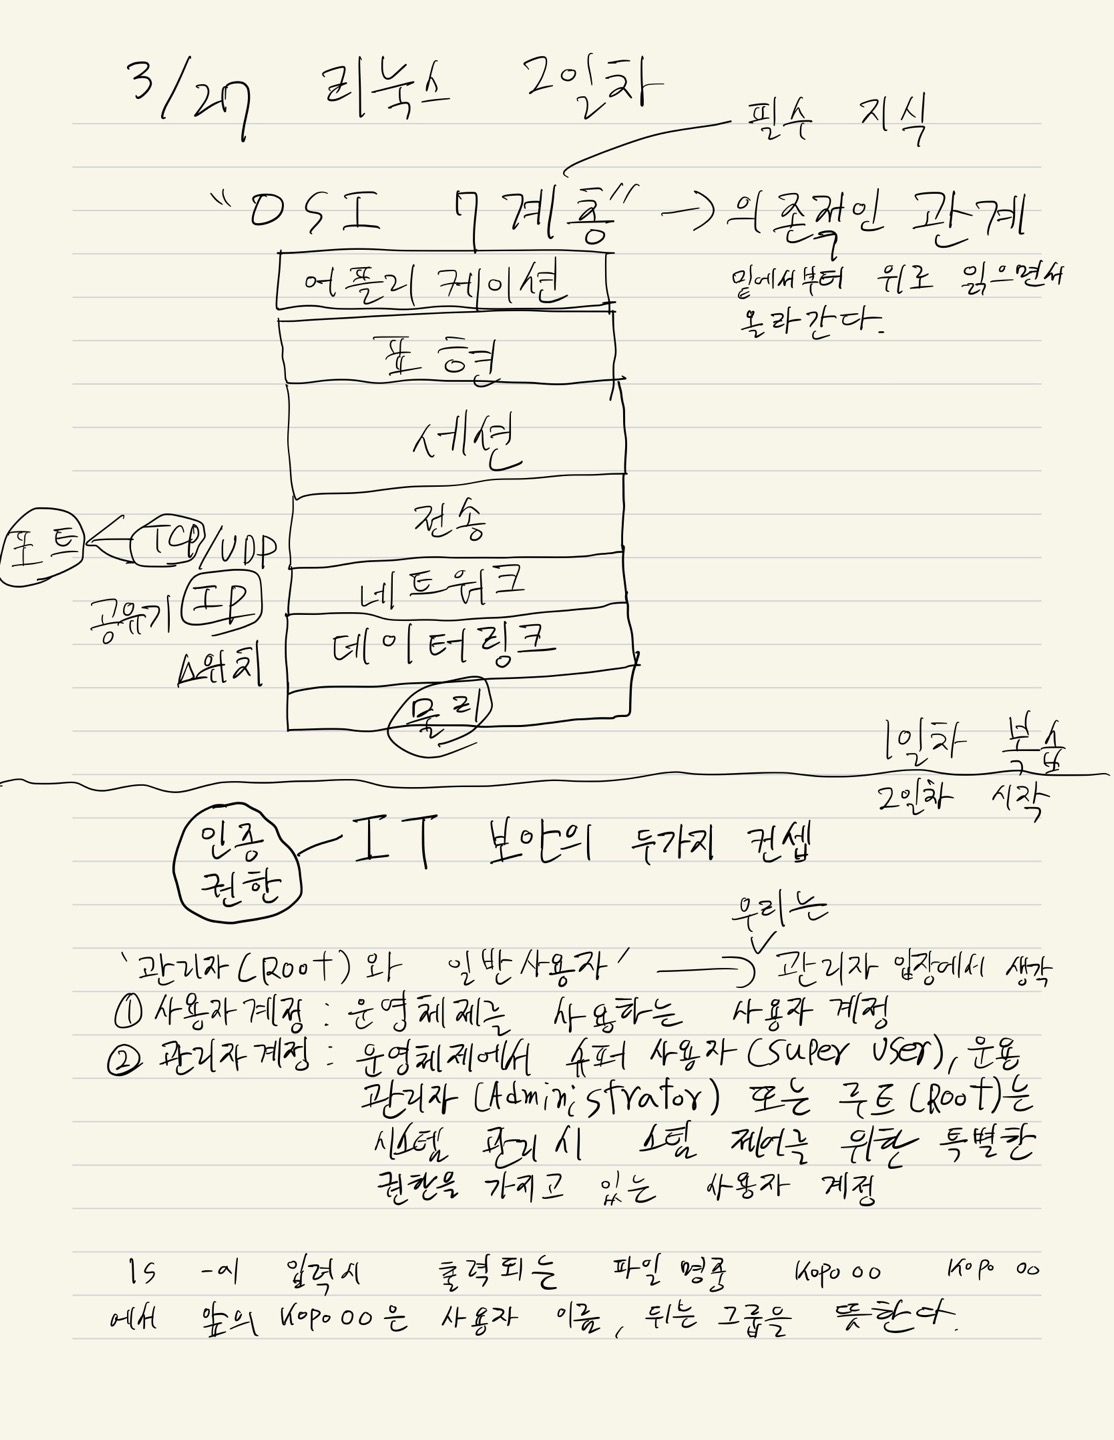 3/27 리눅스 2일차
필수 지식
"OSI 7계층" → 의존적인 관계
밑에서부터 위로 읽으면서
올라간다.
어플리케이션
표현
세션
전송
포트 ← TCP/UDP
네트워크
공유기 IP
데이터링크
스위치
물리
1일차 복습
2일차 시작
인증
권한
IT 보안의 두가지 컨셉
우리는
'관리자(Root)와 일반사용자' → 관리자 입장에서 생각
① 사용자계정 : 운영체제를 사용하는 사용자 계정
② 관리자계정 : 운영체제에서 슈퍼 사용자(super user), 운용
관리자(Administrator) 또는 루트(Root)는
시스템 관리시 스템 제어를 위한 특별한
권한을 가지고 있는 사용자 계정
ls -al 입력시 출력되는 파일 명중 kopo00 kopo00
에서 앞의 kopo00은 사용자 이름, 뒤는 그룹을 뜻한다.